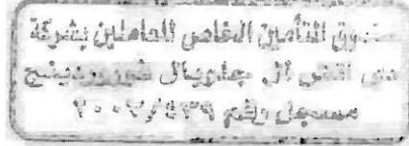 صندوق التأمين الخاص للعاملين بشركة
دى اتش ال جلوبال فوروردينج
مسجل رقم